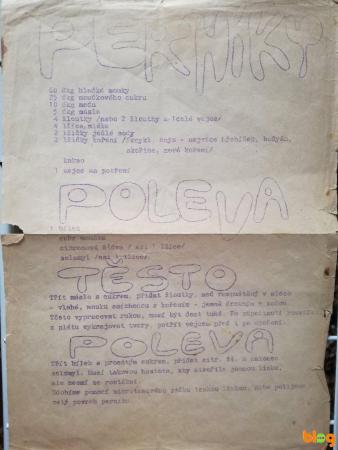 PERNÍKY
60 dkg hladké mouky
25 dkg moučkového cukru
10 dkg medu
5 dkg másla
4 žloutky /nebo 2 žloutky a 1celé vejce/
4 lžíce mléka
2 lžičky jedlé sody
2 lžičky koření - nejvíce hřebíček, badyán,
skořice, nové koření/
kakao
1 vejce na potření
POLEVA
1 bílek
cukr moučka
citronová šťáva / asi 1 lžíce/
solamyl /asi 1 lžíce/
TĚSTO
Třít máslo s cukrem, přidat žloutky, med rozpuštěný v mléce
- vlahé, mouku smíchanou s kořením - jemně
Těsto vypracovat rukou, musí být dost tuhé. Po
z plátu vykrajovat tvary, potřít vejcem před i po upečení.
POLEVA
Třít bílek s prosátým cukrem, přidat citr. šť. a nakonec
solamyl. Musí takovou hustotu, aby utvořila jemnou linku,
ale nesmí se roztékat.
Zdobíme pomocí mikrotenového sáčku tenkou linkou, nebo polijeme
celý povrch perníku.
blog